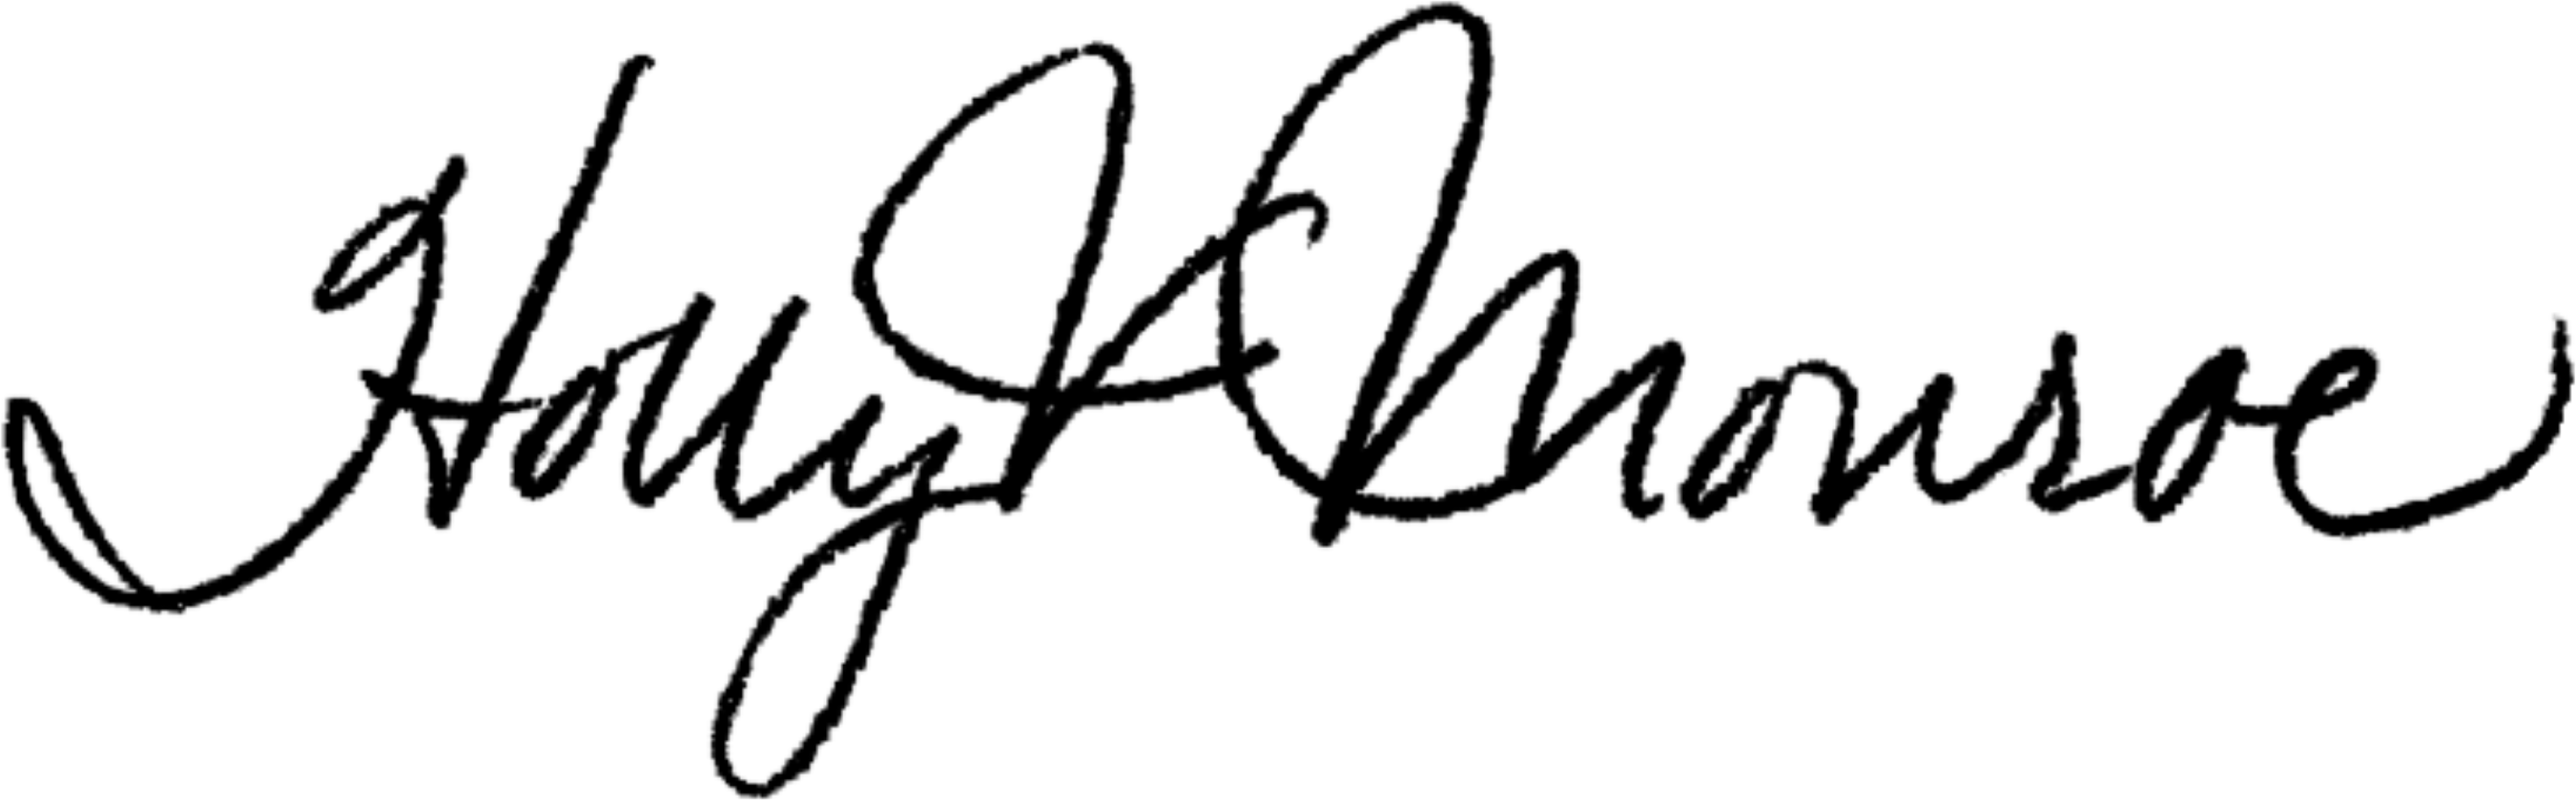 Holly Monroe